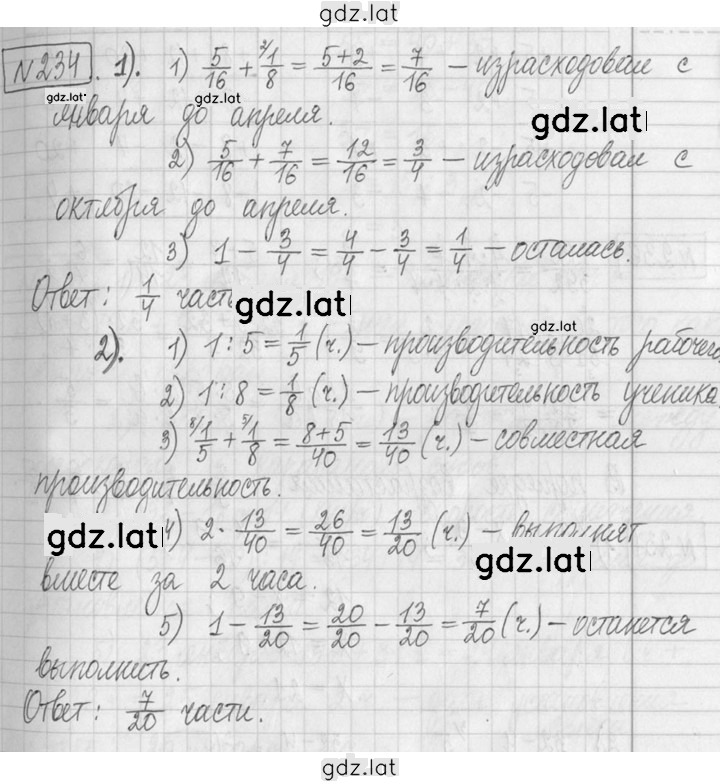 gdz.lat
№234. 1). 1) 5/16 + ²⁄1/8 = 5+2/16 = 7/16 — израсходовали с
gdz.lat
января до апреля.
gdz.lat
2) 5/16 + 7/16 = 12/16 = 3/4 — израсходовали с
октября до апреля.
3) 1 - 3/4 = 4/4 - 3/4 = 1/4 — осталась.
Ответ: 1/4 часть
gdz.lat
gdz.lat
2). 1) 1 : 5 = 1/5 (ч.) — производительность рабочего,
2) 1 : 8 = 1/8 (ч.) — производительность ученика
3) ⁸⁄1/5 + ⁵⁄1/8 = 8+5/40 = 13/40 (ч.) — совместная
производительность.
gdz.lat
4) 2 · 13/40 = 26/40 = 13/20 (ч.) — выполнят
gdz.lat
вместе за 2 часа.
5) 1 - 13/20 = 20/20 - 13/20 = 7/20 (ч.) — останется
выполнить.
Ответ: 7/20 части.
gdz.lat